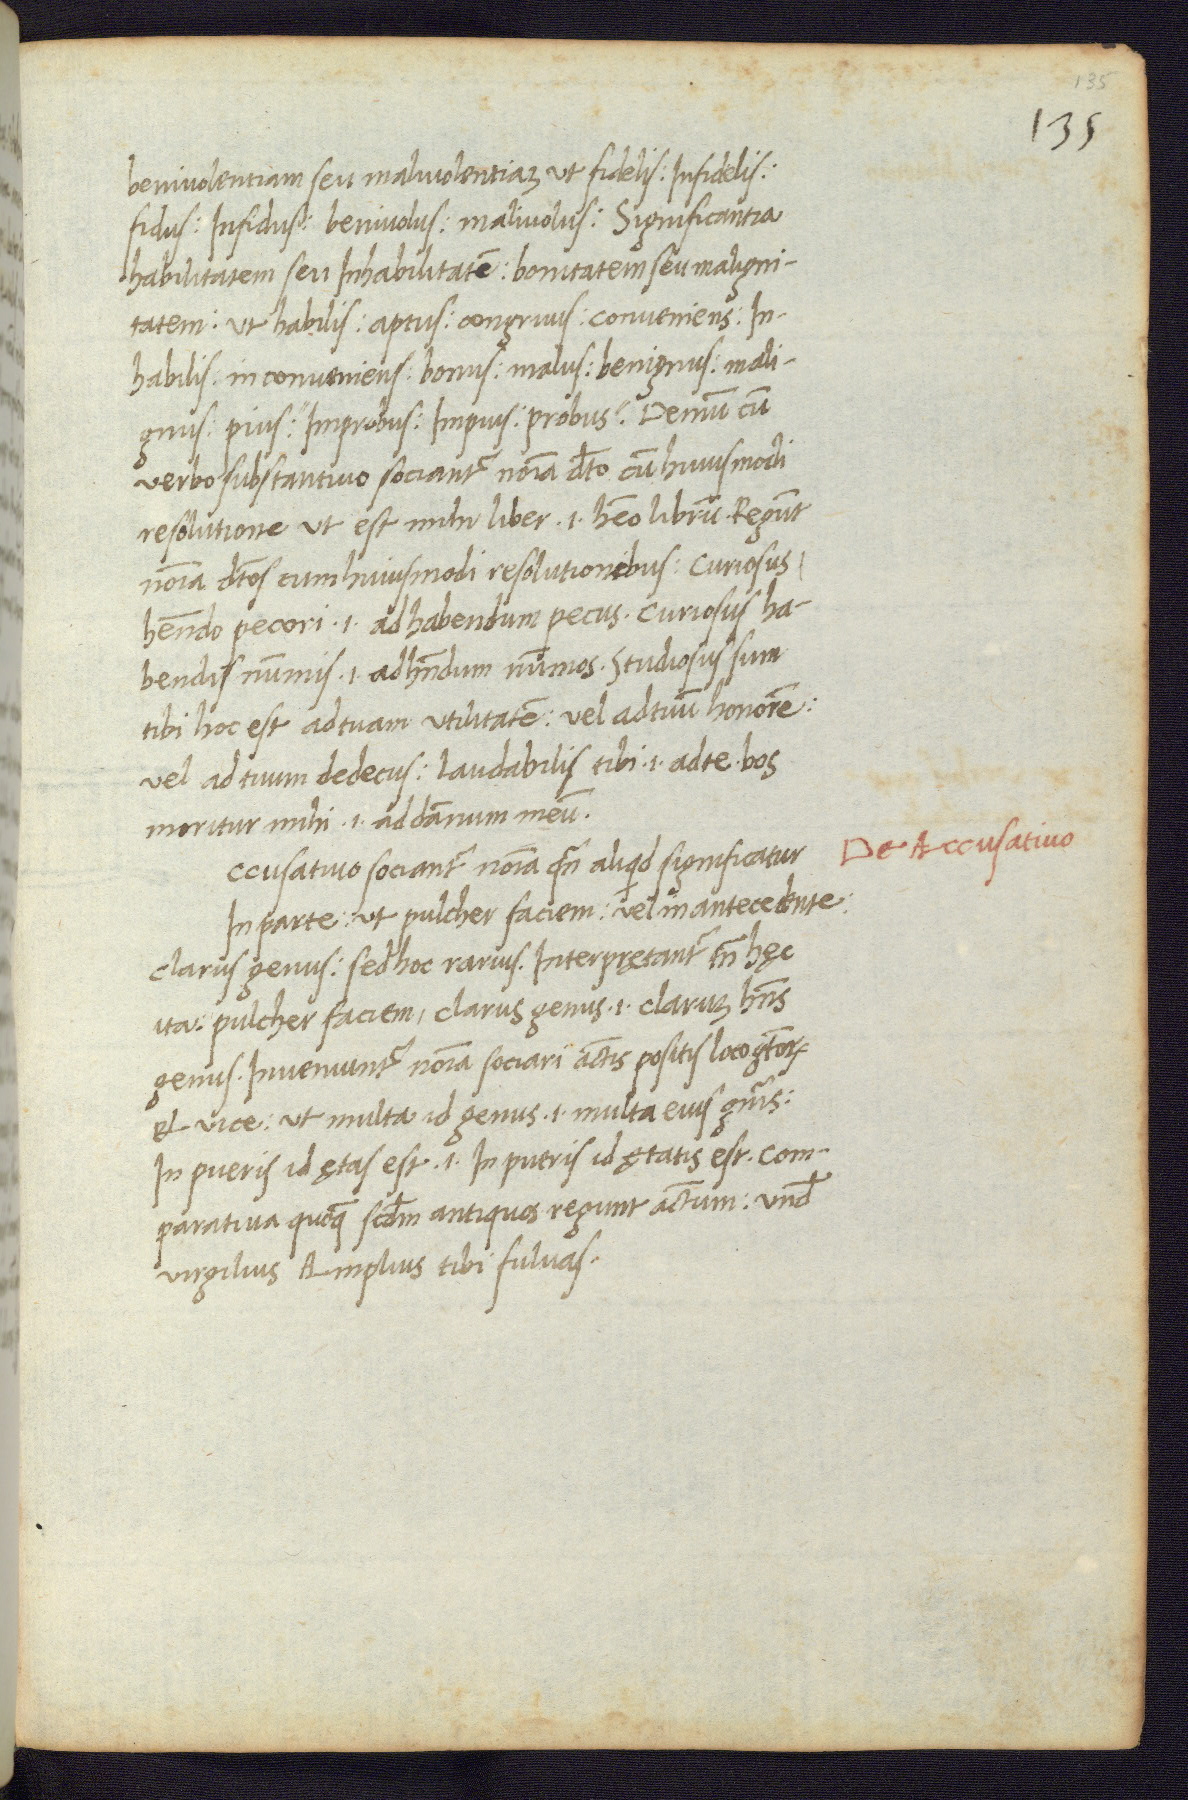 135
135
beniuolentiam seu maliuolentiaꝫ ut fidelis: Infidelis:
fidus: Infidus: beniuolus: maliuolus: Significantia
habilitatem seu Inhabilitatē: bonitatem seu maligni-
tatem: ut habilis: aptus: congruus: conueniens: In-
habilis: inconueniens: bonus: malus: benignus: mali-
gnus: pius: Improbus: Impius: probus. Demū cū
verbo substantiuo sociant᷑ noīa dt̄o cū huiusmodi
resolutione ut est mihi liber .i. hēo librū. Regūt
noīa dt̄os cum huiusmodi resolutionibus: Curiosus
hēndo pecori .i. ad habendum pecus. Curiosus ha-
bendis nūmis .i. ad hn̄dum nūmos. Studiosus sum
tibi hoc est ad tuam utilitatē: vel ad tuū honorē:
vel ad tuum dedecus: laudabilis tibi .i. ad te. bos
moritur mihi .i. ad dānum meū.
De Accusatiuo
ccusatiuo sociant᷑ noīa qn̄ aliqid significatur
In parte: ut pulcher faciem: vel in antecedente:
clarus genus: sed hoc rarius. Interpretant᷑ tn̄ hęc
ita: pulcher faciem, clarus genus .i. claruꝫ hn̄s
genus. Inueniunt᷑ noīa sociari actīs positis loco gt̄oꝝ
et vice: ut multa id genus .i. multa eius gn̄is:
In pueris id ętas est .i. In pueris id ętatis est. Com-
paratiua quoqꝫ scd̄m antiquos regunt actūm: und̄
virgilius Amplius tibi fuluas.